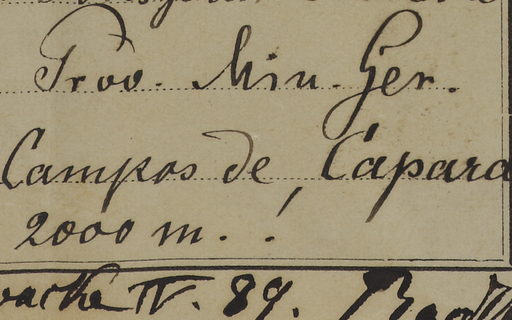 Prov. Min. Ger.
Campos de Capara
2000 m. !
IV. 89.